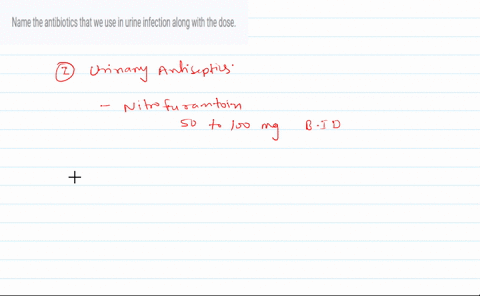 Name the antibiotics that we use in urine infection along with the dose.
② Urinary Antiseptics.
- Nitrofurantoin
50 to 100 mg B.I.D